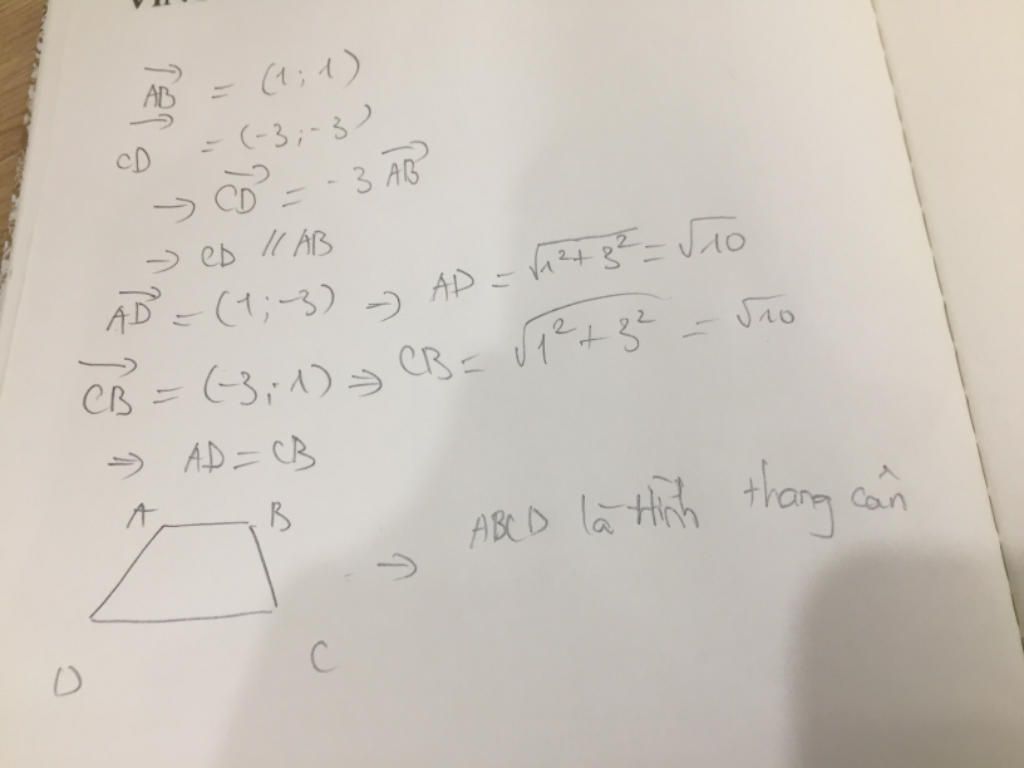 VIN
\overrightarrow{AB} = (1; 1)
\overrightarrow{CD} = (-3; -3)
→ \overrightarrow{CD} = -3 \overrightarrow{AB}
→ CD // AB
\overrightarrow{AD} = (1; -3) → AD = √(1² + 3²) = √10
\overrightarrow{CB} = (-3; 1) ⇒ CB = √(1² + 3²) = √10
⇒ AD = CB
A B
→ ABCD là Hình thang cân
D C